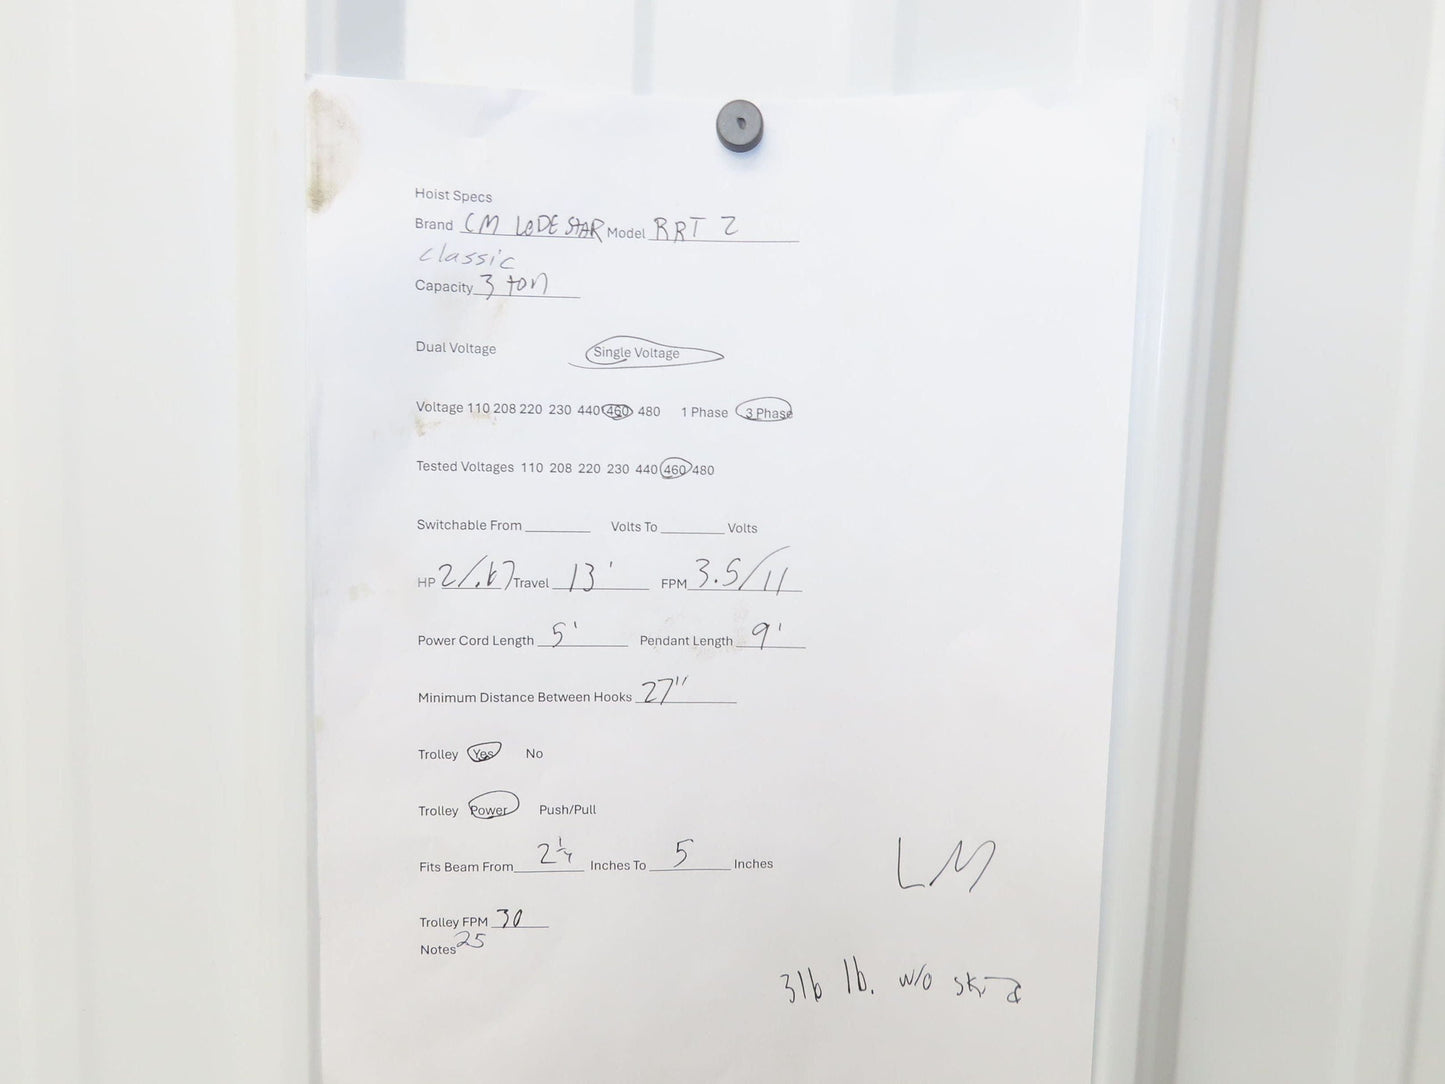 Hoist Specs
Brand CM LODESTAR Model RRT 2
classic
Capacity 3 ton
Dual Voltage Single Voltage
Voltage 110 208 220 230 440 460 480 1 Phase 3 Phase
Tested Voltages 110 208 220 230 440 460 480
Switchable From ______ Volts To ______ Volts
HP 2/.67 Travel 13' FPM 3.5/11
Power Cord Length 5' Pendant Length 9'
Minimum Distance Between Hooks 27"
Trolley Yes No
Trolley Power Push/Pull
Fits Beam From 2 1/4 Inches To 5 Inches
LM
Trolley FPM 30
Notes 25
316 lb. w/o